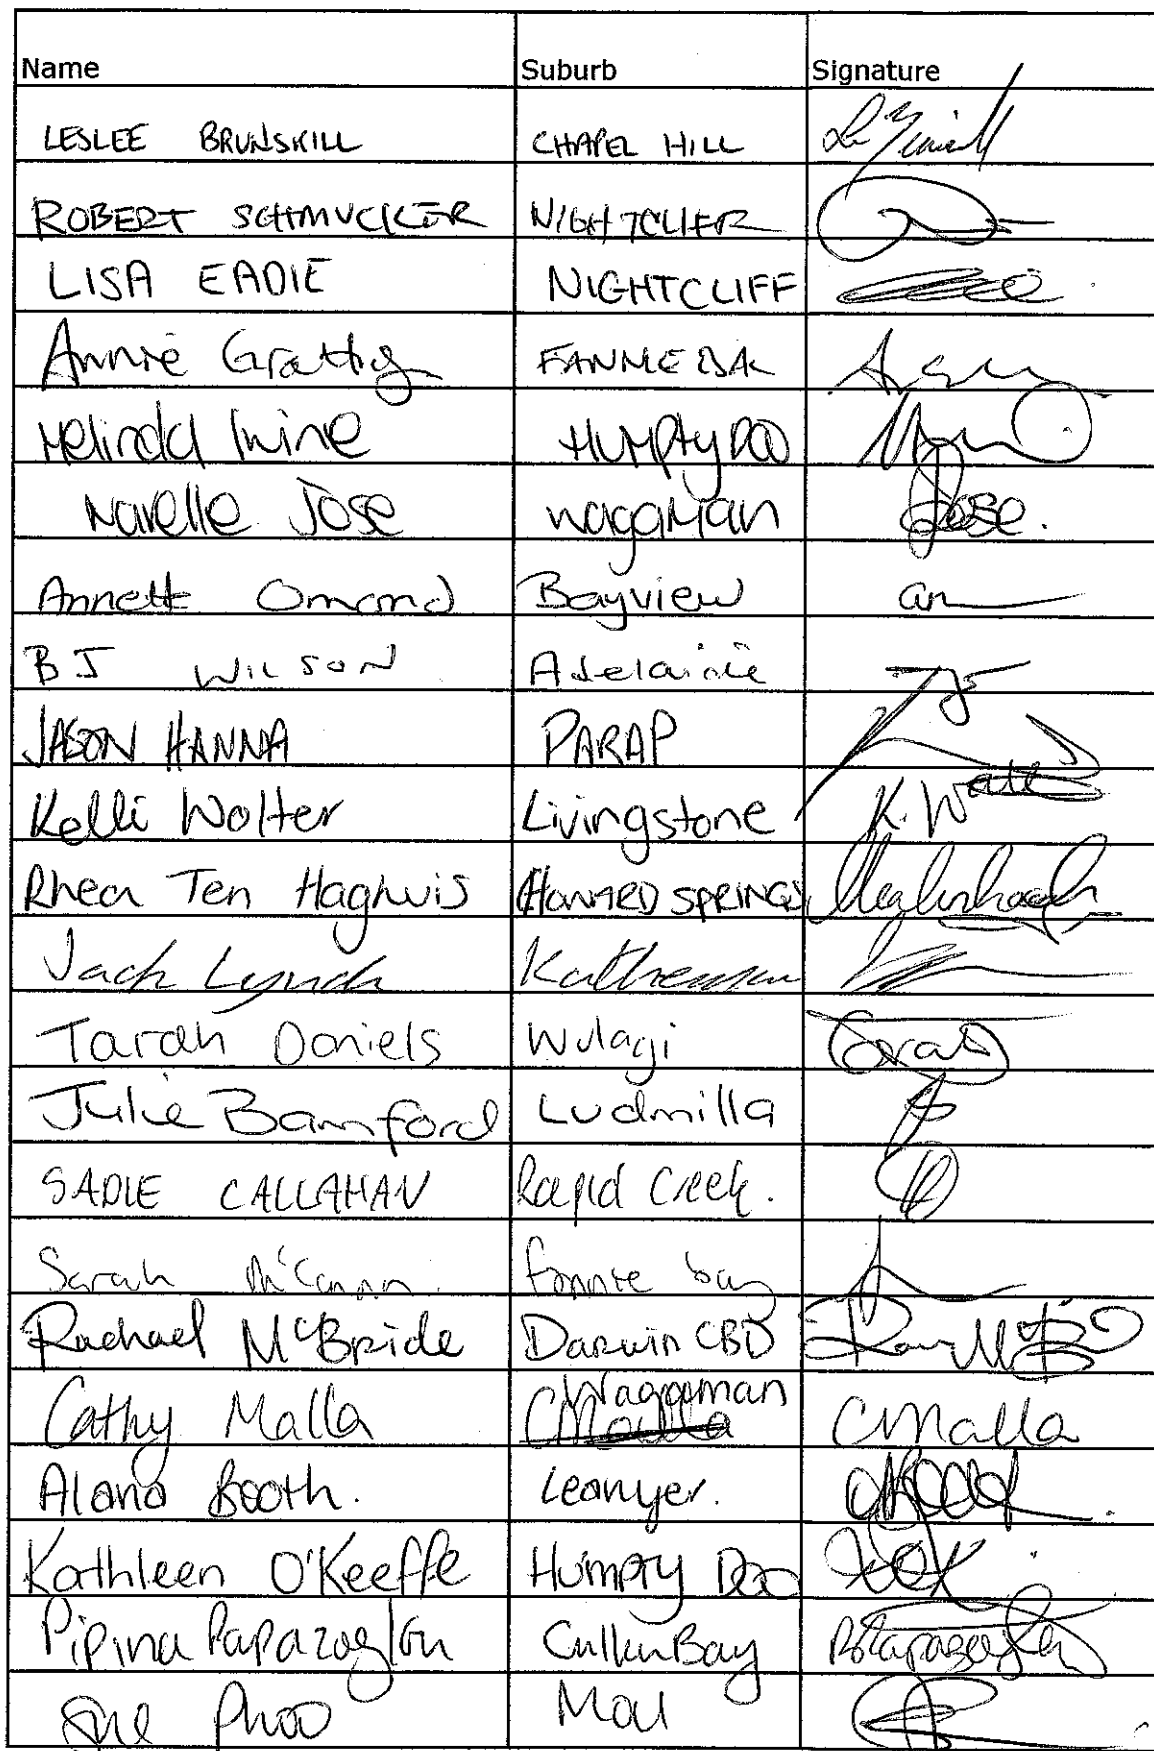 Name Suburb Signature
LESLEE BRUNSKILL CHAPEL HILL
ROBERT SCHMUCKER NIGHTCLIFF
LISA EADIE NIGHTCLIFF
Annie Grattig FANNIE BAY
Melinda Irvine HUMPty DOO
Narelle Jose wagaman Jose.
Annett Omond Bayview an
BJ WILSON Adelaide
JASON HANNA PARAP
Kelli Wolter Livingstone K. Wolter
Rhea Ten Haghuis HOWARD SPRINGS
Jack Lynch Katherine
Tarah Daniels Wulagi Tarah
Julie Bamford Ludmilla
SADIE CALLAHAN Rapid Creek.
Sarah McCann Fannie bay
Rachael McBride Darwin CBD
Wagaman
Cathy Malla CMalla CMalla
Alana Booth. Leanyer.
Kathleen O'Keeffe Humpty Doo KOK
Pipina Papazoglou Cullen Bay PPapazoglou
Sue